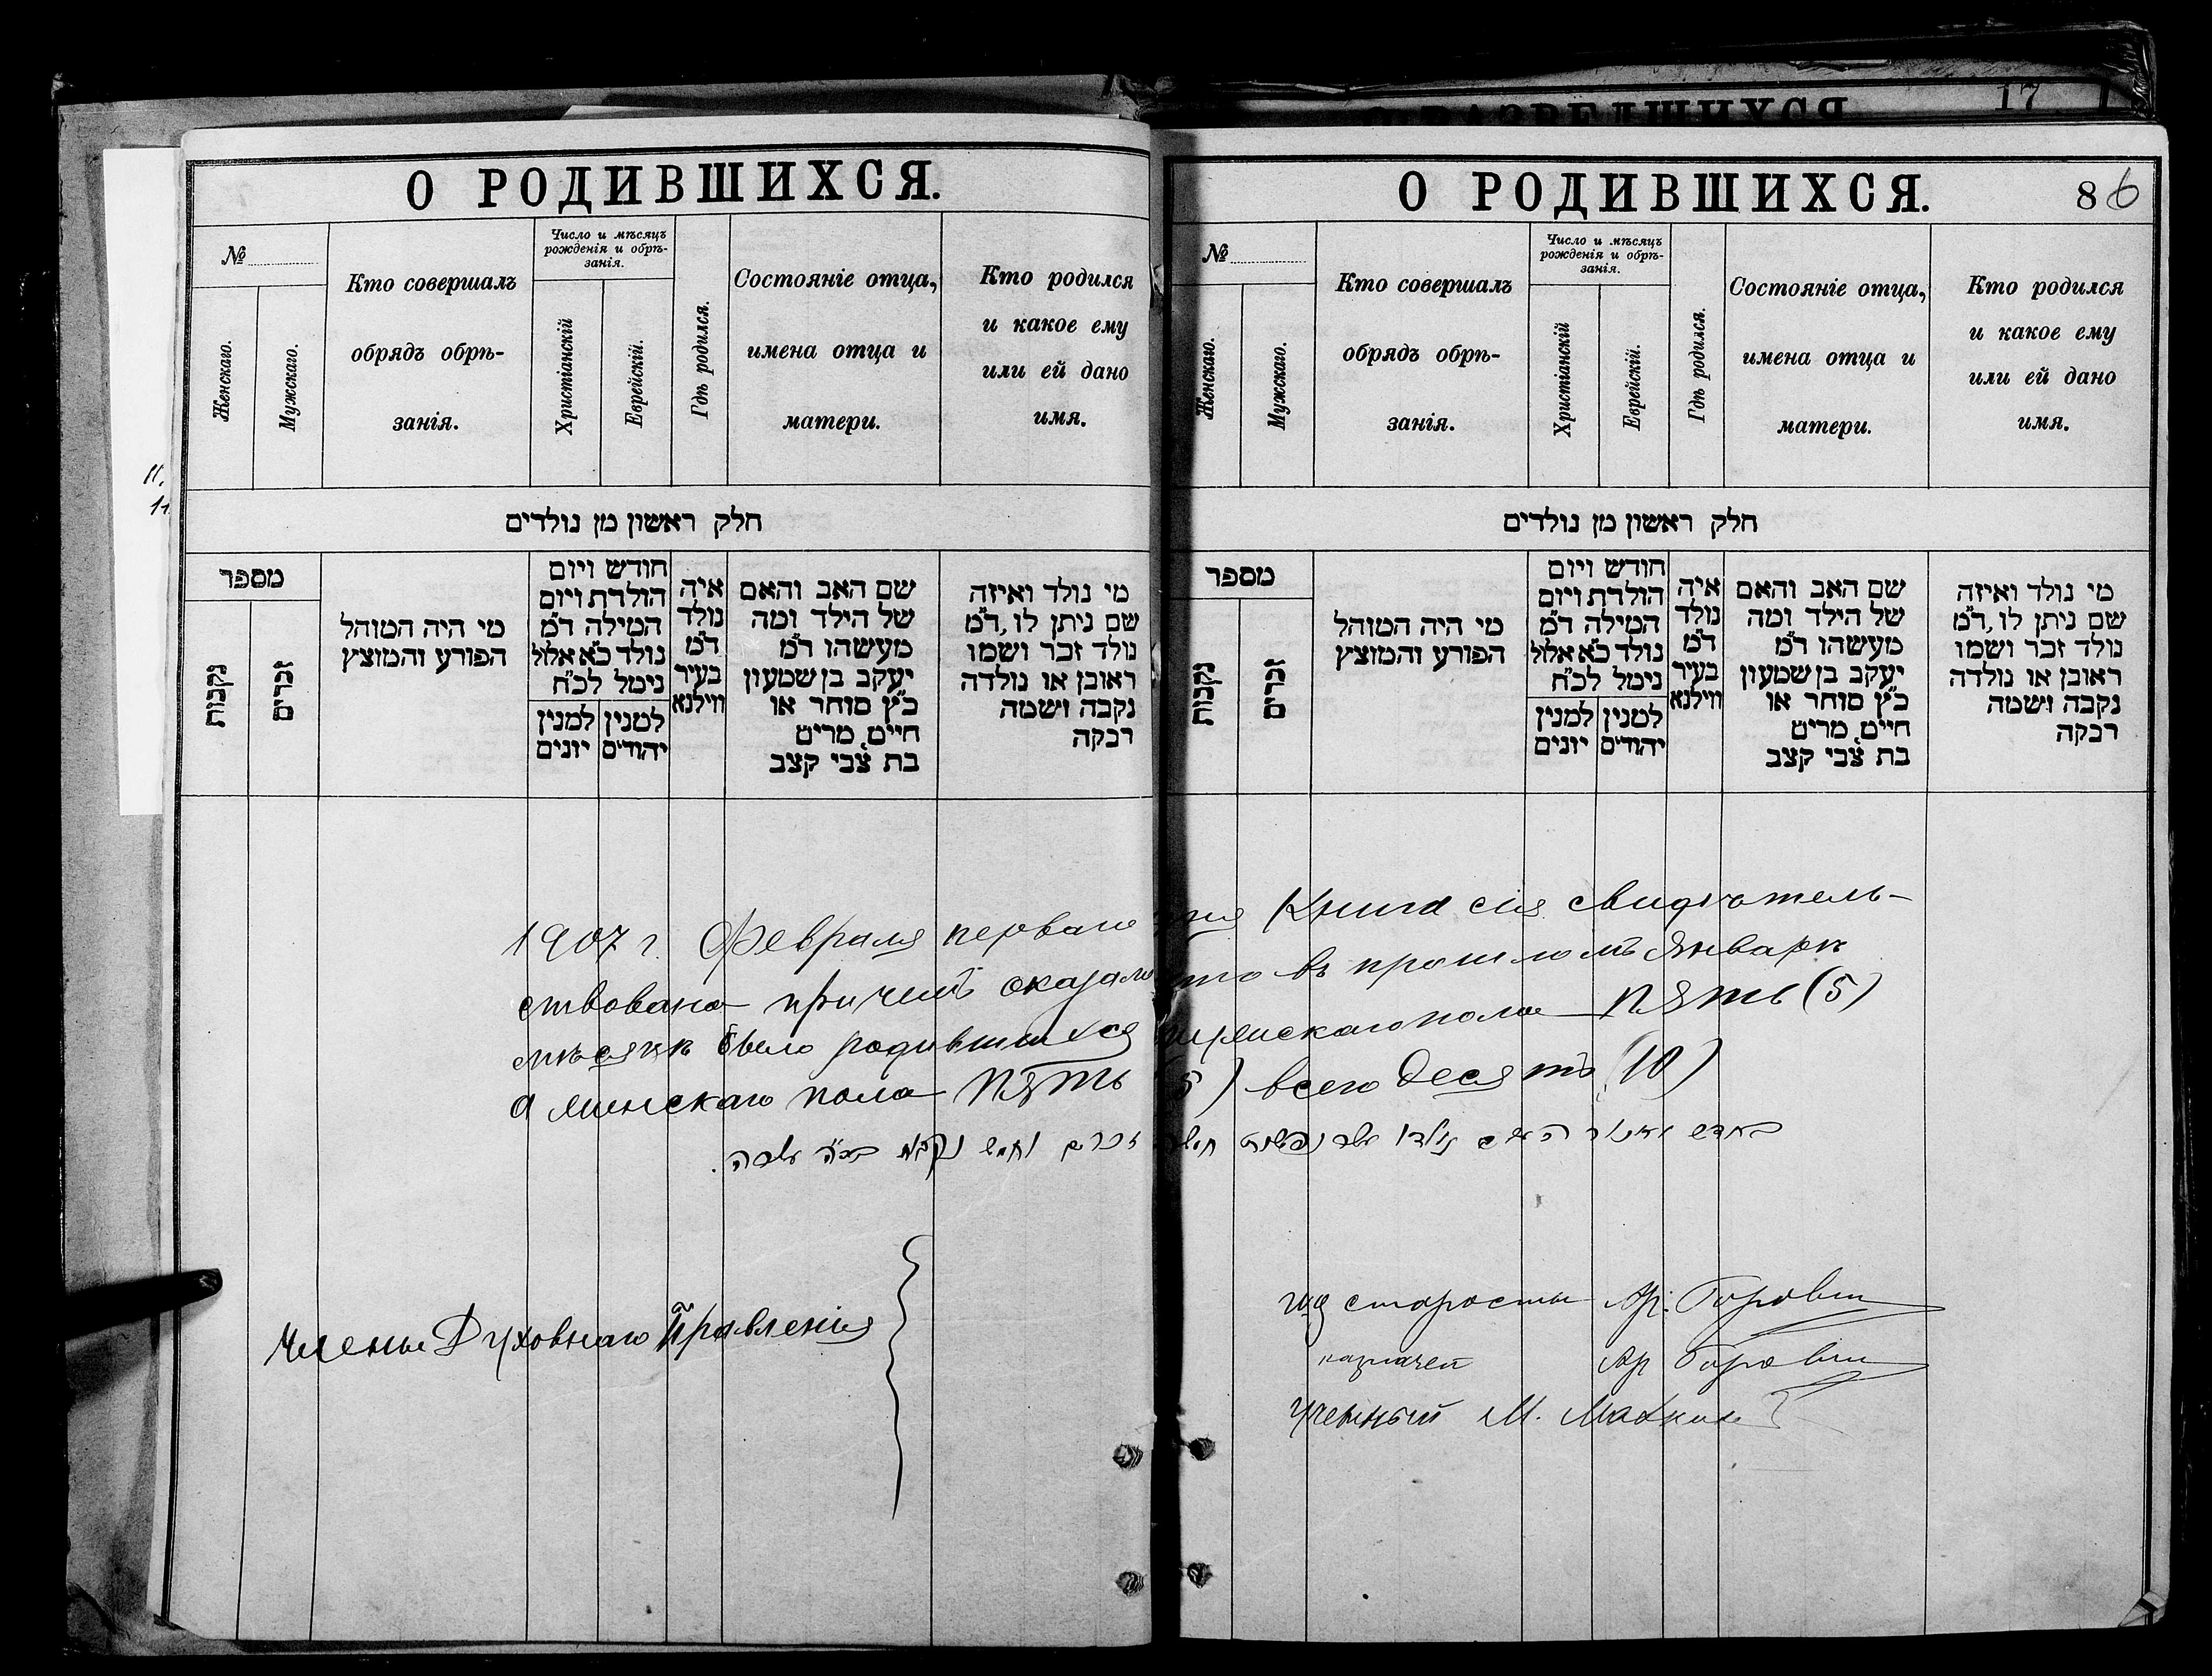 17
О РАЗВЕДШИХСЯ
О РОДИВШИХСЯ.
№
Женскаго.
Мужскаго.
Кто совершалъ
обрядъ обрѣ-
занія.
Число и мѣсяцъ
рожденія и обрѣ-
занія.
Христіанскій
Еврейскій.
Гдѣ родился.
Состояніе отца,
имена отца и
матери.
Кто родился
и какое ему
или ей дано
имя.
חלק ראשון מן נולדים
מספר
נקבות
זכרים
מי היה המוהל
הפורע והמוצץ
חודש ויום
הולדת ויום
המילה ד״מ
נולד כ״א אלול
נימל לכ״ח
למנין יונים
למנין יהודים
איה
נולד
ד״מ
בעיר
ווילנא
שם האב והאם
של הילד ומה
מעשהו ד״מ
יעקב בן שמעון
כ״ץ סוחר או
חייט, מרים
בת צבי קצב
מי נולד ואיזה
שם ניתן לו, ד״מ
נולד זכר ושמו
ראובן או נולדה
נקבה ושמה
רבקה
О РОДИВШИХСЯ.
86
№
Женскаго.
Мужскаго.
Кто совершалъ
обрядъ обрѣ-
занія.
Число и мѣсяцъ
рожденія и обрѣ-
занія.
Христіанскій
Еврейскій.
Гдѣ родился.
Состояніе отца,
имена отца и
матери.
Кто родился
и какое ему
или ей дано
имя.
חלק ראשון מן נולדים
מספר
נקבות
זכרים
מי היה המוהל
הפורע והמוצץ
חודש ויום
הולדת ויום
המילה ד״מ
נולד כ״א אלול
נימל לכ״ח
למנין יונים
למנין יהודים
איה
נולד
ד״מ
בעיר
ווילנא
שם האב והאם
של הילד ומה
מעשהו ד״מ
יעקב בן שמעון
כ״ץ סוחר או
חייט, מרים
בת צבי קצב
מי נולד ואיזה
שם ניתן לו, ד״מ
נולד זכר ושמו
ראובן או נולדה
נקבה ושמה
רבקה
1907 г. Февраля перваго дня Книга сія свидѣтель-
ствована при чемъ оказалось что въ прошломъ Январѣ
мѣсяцѣ было родившихся мужскаго пола пять (5)
а женскаго пола пять (5) всего десять (10)
בחדש יאנואר נולדו עשר נפשות חמשה זכרים וחמש נקבות בס״ה עשרה.
Члены Духовнаго Правленія
за старосты Ар. Горовиц
казначей Ар Горовиц
Ученый М.